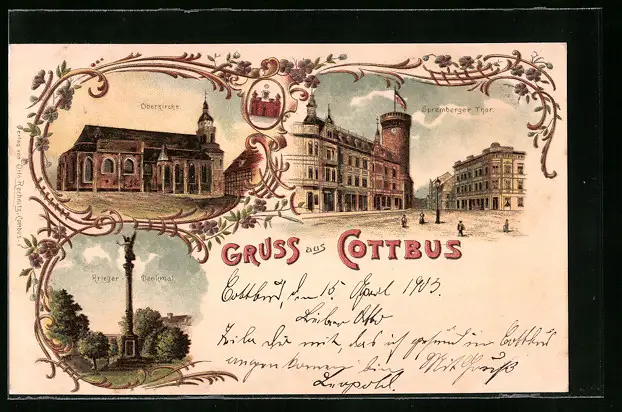 Oberkirche.
Spremberger Thor.
Verlag von Otto
Krieger-Denkmal.
GRUSS aus COTTBUS
Cottbus, den 15. April 1903.
Lieber Otto
Teile dir mit, das ich gesund in Cottbus
angekommen bin Mit Gruß
Leopold.